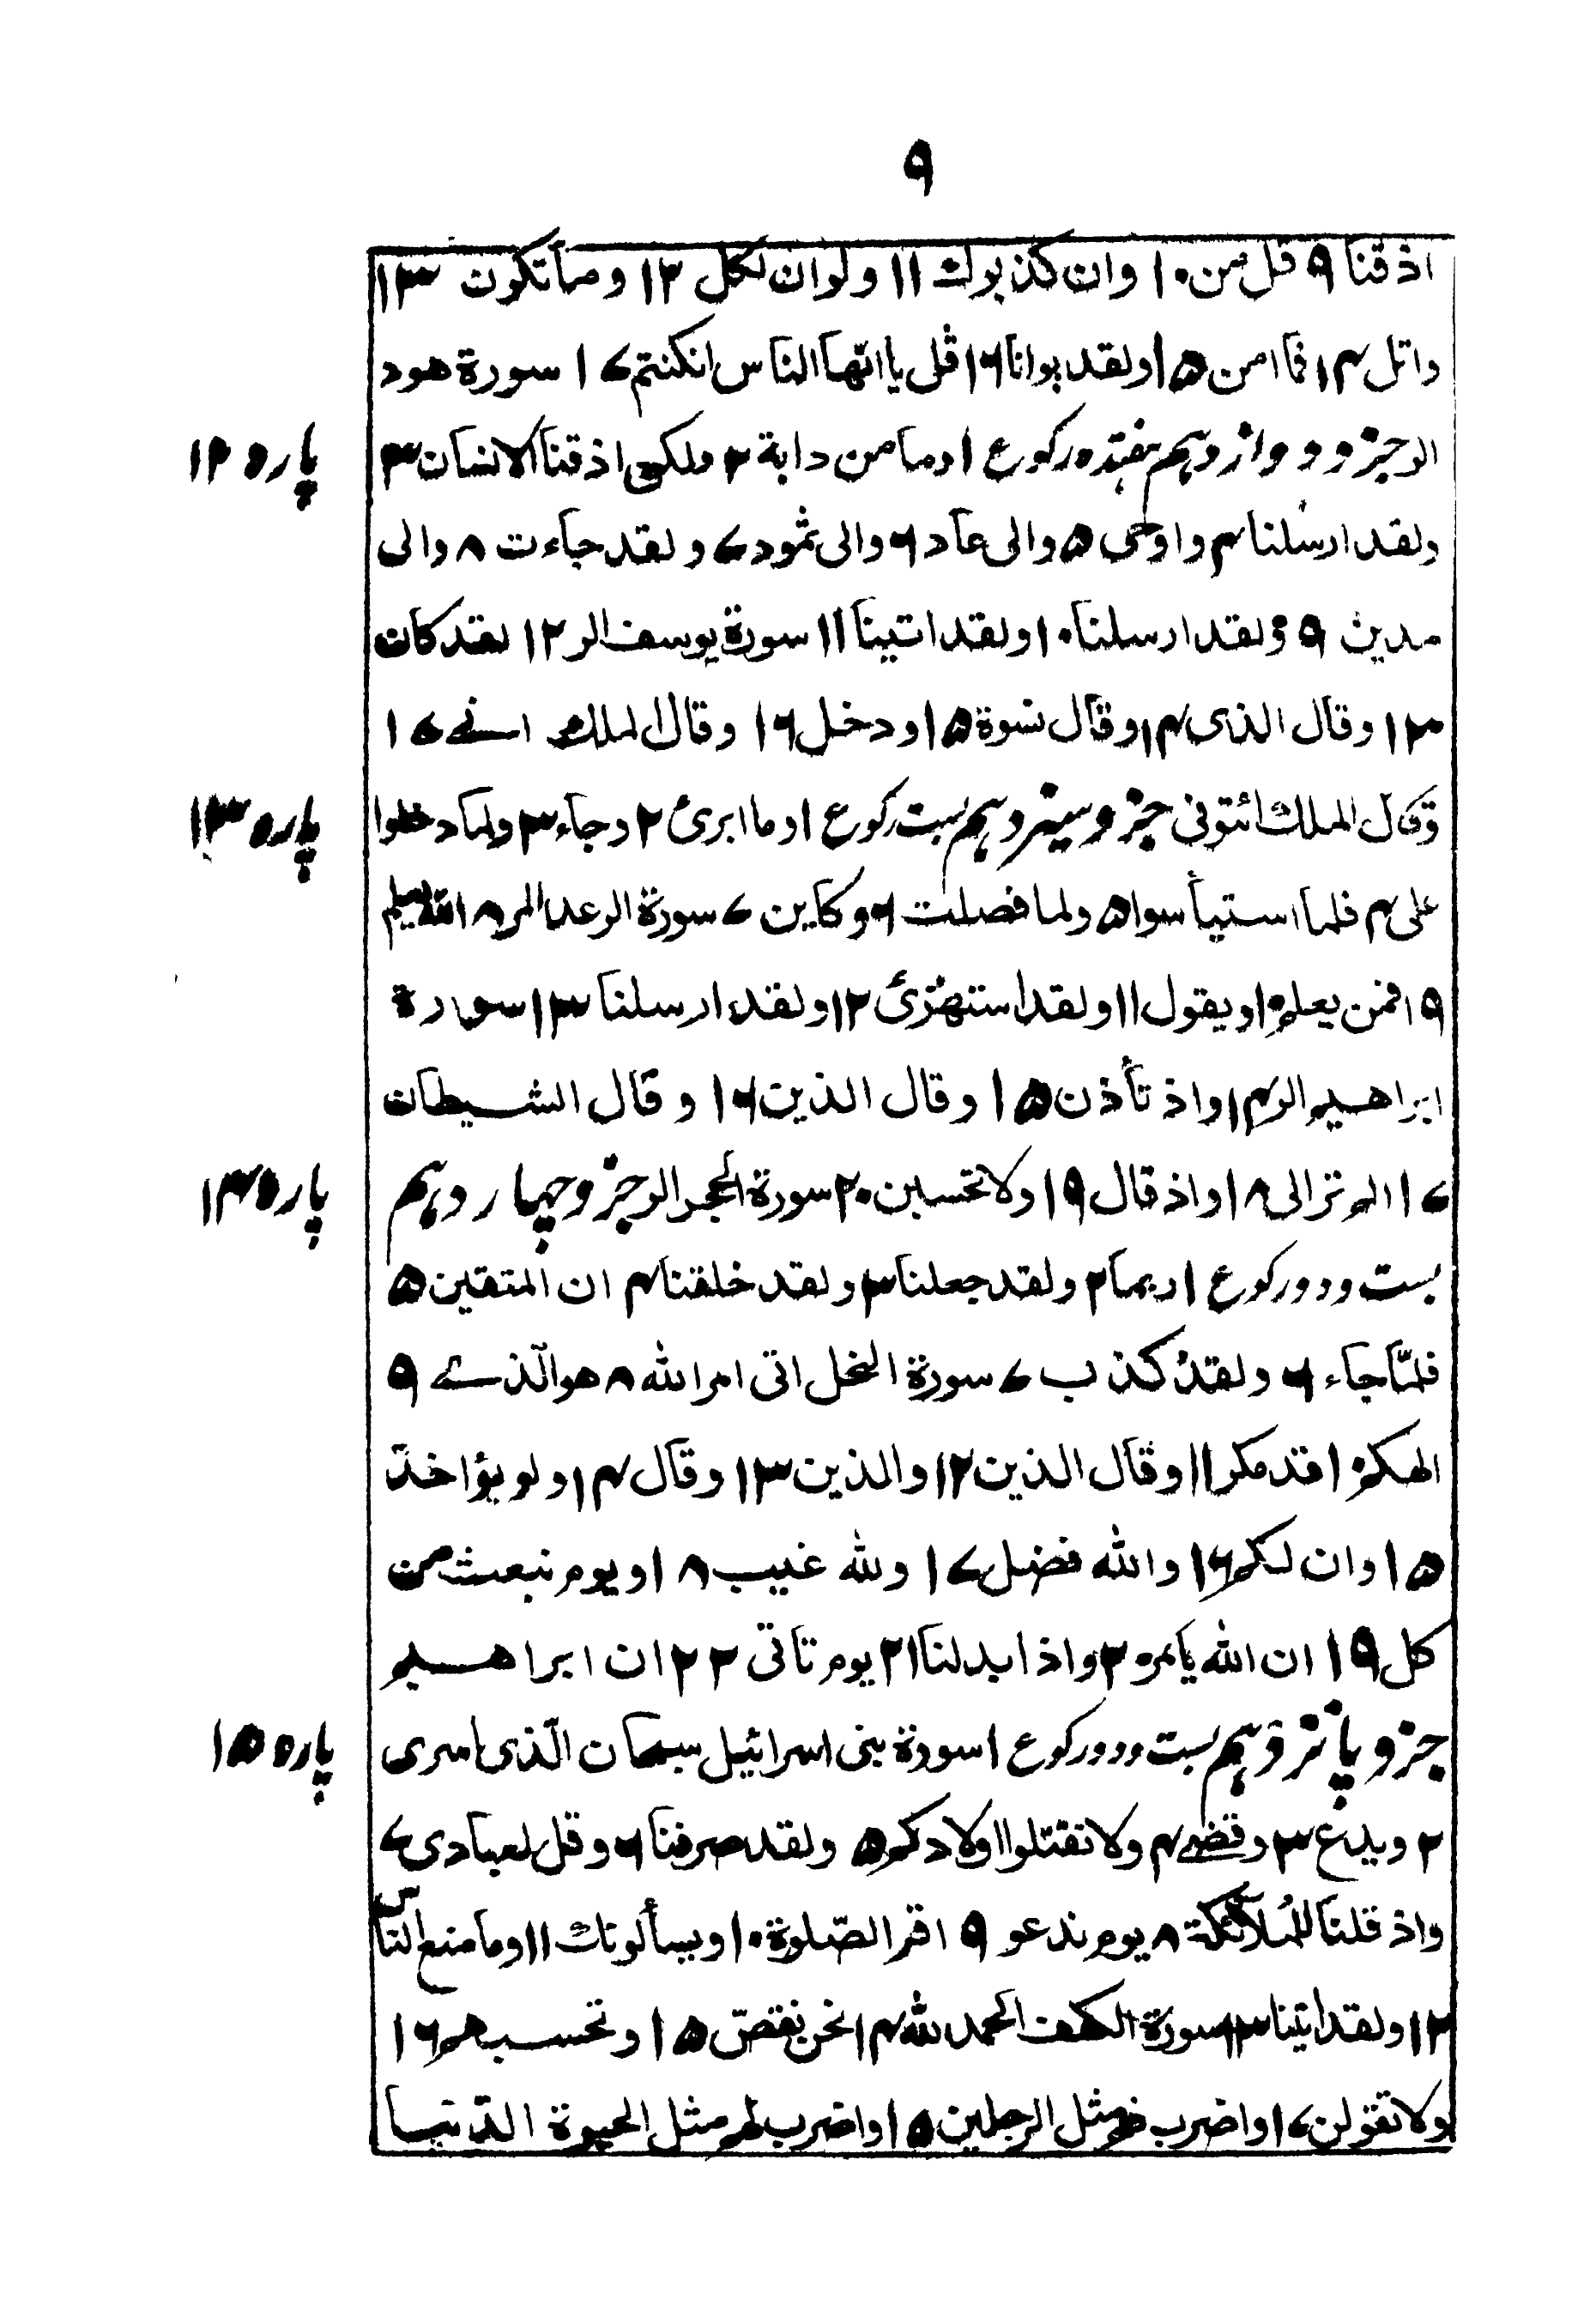 ۹
اذقنا ۹ قل من ۱۰ وان کذبوك ۱۱ ولوان لکل ۱۲ وما تکون ۱۳
واتل ۱۴ فما امن ۱۵ ولقد بوانا ۱۶ قل یا ایّها الناس انکنتم ۱۷ سورة هود
الر جزو دوازدہم ہفتدہ رکوع ۱ وما من دابة ۲ ولئن اذقنا الانسان ۳
پارہ ۱۲
ولقد ارسلنا ۴ واوحی ۵ والی عاد ۶ والی ثمود ۷ ولقد جاءت ۸ والی
مدین ۹ ولقد ارسلنا ۱۰ ولقد اتینا ۱۱ سورة یوسف الر ۱۲ لقد کان
۱۳ وقال الذی ۱۴ وقال نسوة ۱۵ ودخل ۱۶ وقال الملك انے ۱۷
وقال الملك ائتونی جزو سیزدہم بست رکوع ۱ وما ابرئ ۲ وجاء ۳ ولما دخلوا
پارہ ۱۳
علی ۴ فلما استیأسوا ۵ ولما فصلت ۶ وکاین ۷ سورة الرعد المر ۸ الله یعلم
۹ افمن یعلم ۱۰ ویقول ۱۱ ولقد استهزئ ۱۲ ولقد ارسلنا ۱۳ سورة
ابراهیم الر ۱۴ واذ تأذن ۱۵ وقال الذین ۱۶ وقال الشیطان
۱۷ الم تر الی ۱۸ واذ قال ۱۹ ولا تحسبن ۲۰ سورة الحجر الر جزو چہاردہم
پارہ ۱۴
بست ودو رکوع ۱ ربما ۲ ولقد جعلنا ۳ ولقد خلقنا ۴ ان المتقین ۵
فلمّا جاء ۶ ولقد کذب ۷ سورة النحل اتی امر الله ۸ هو الّذے ۹
الهکم ۱۰ قد مکر ۱۱ وقال الذین ۱۲ والذین ۱۳ وقال ۱۴ ولو یؤاخذ
۱۵ وان لکم ۱۶ والله فضل ۱۷ ولله غیب ۱۸ ویوم نبعث من
کل ۱۹ ان الله یامر ۲۰ واذا بدلنا ۲۱ یوم تاتی ۲۲ ان ابراهیم
جزو پانزدہم بست ودو رکوع ۱ سورة بنی اسرائیل سبحان الّذی اسری
پارہ ۱۵
۲ ویدع ۳ وقضے ۴ ولا تقتلوا اولادکم ۵ ولقد صرفنا ۶ وقل لعبادی ۷
واذ قلنا للملآئکة ۸ یوم ندعو ۹ اقم الصّلوة ۱۰ ویسألونك ۱۱ وما منع الناس
۱۲ ولقد اتینا ۱۳ سورة الکهف الحمد لله ۱۴ نحن نقصّ ۱۵ وتحسبهم ۱۶
ولا تقولن ۱۷ واضرب لهم مثل الرجلین ۱۵ واضرب لهم مثل الحیوة الدّنیا